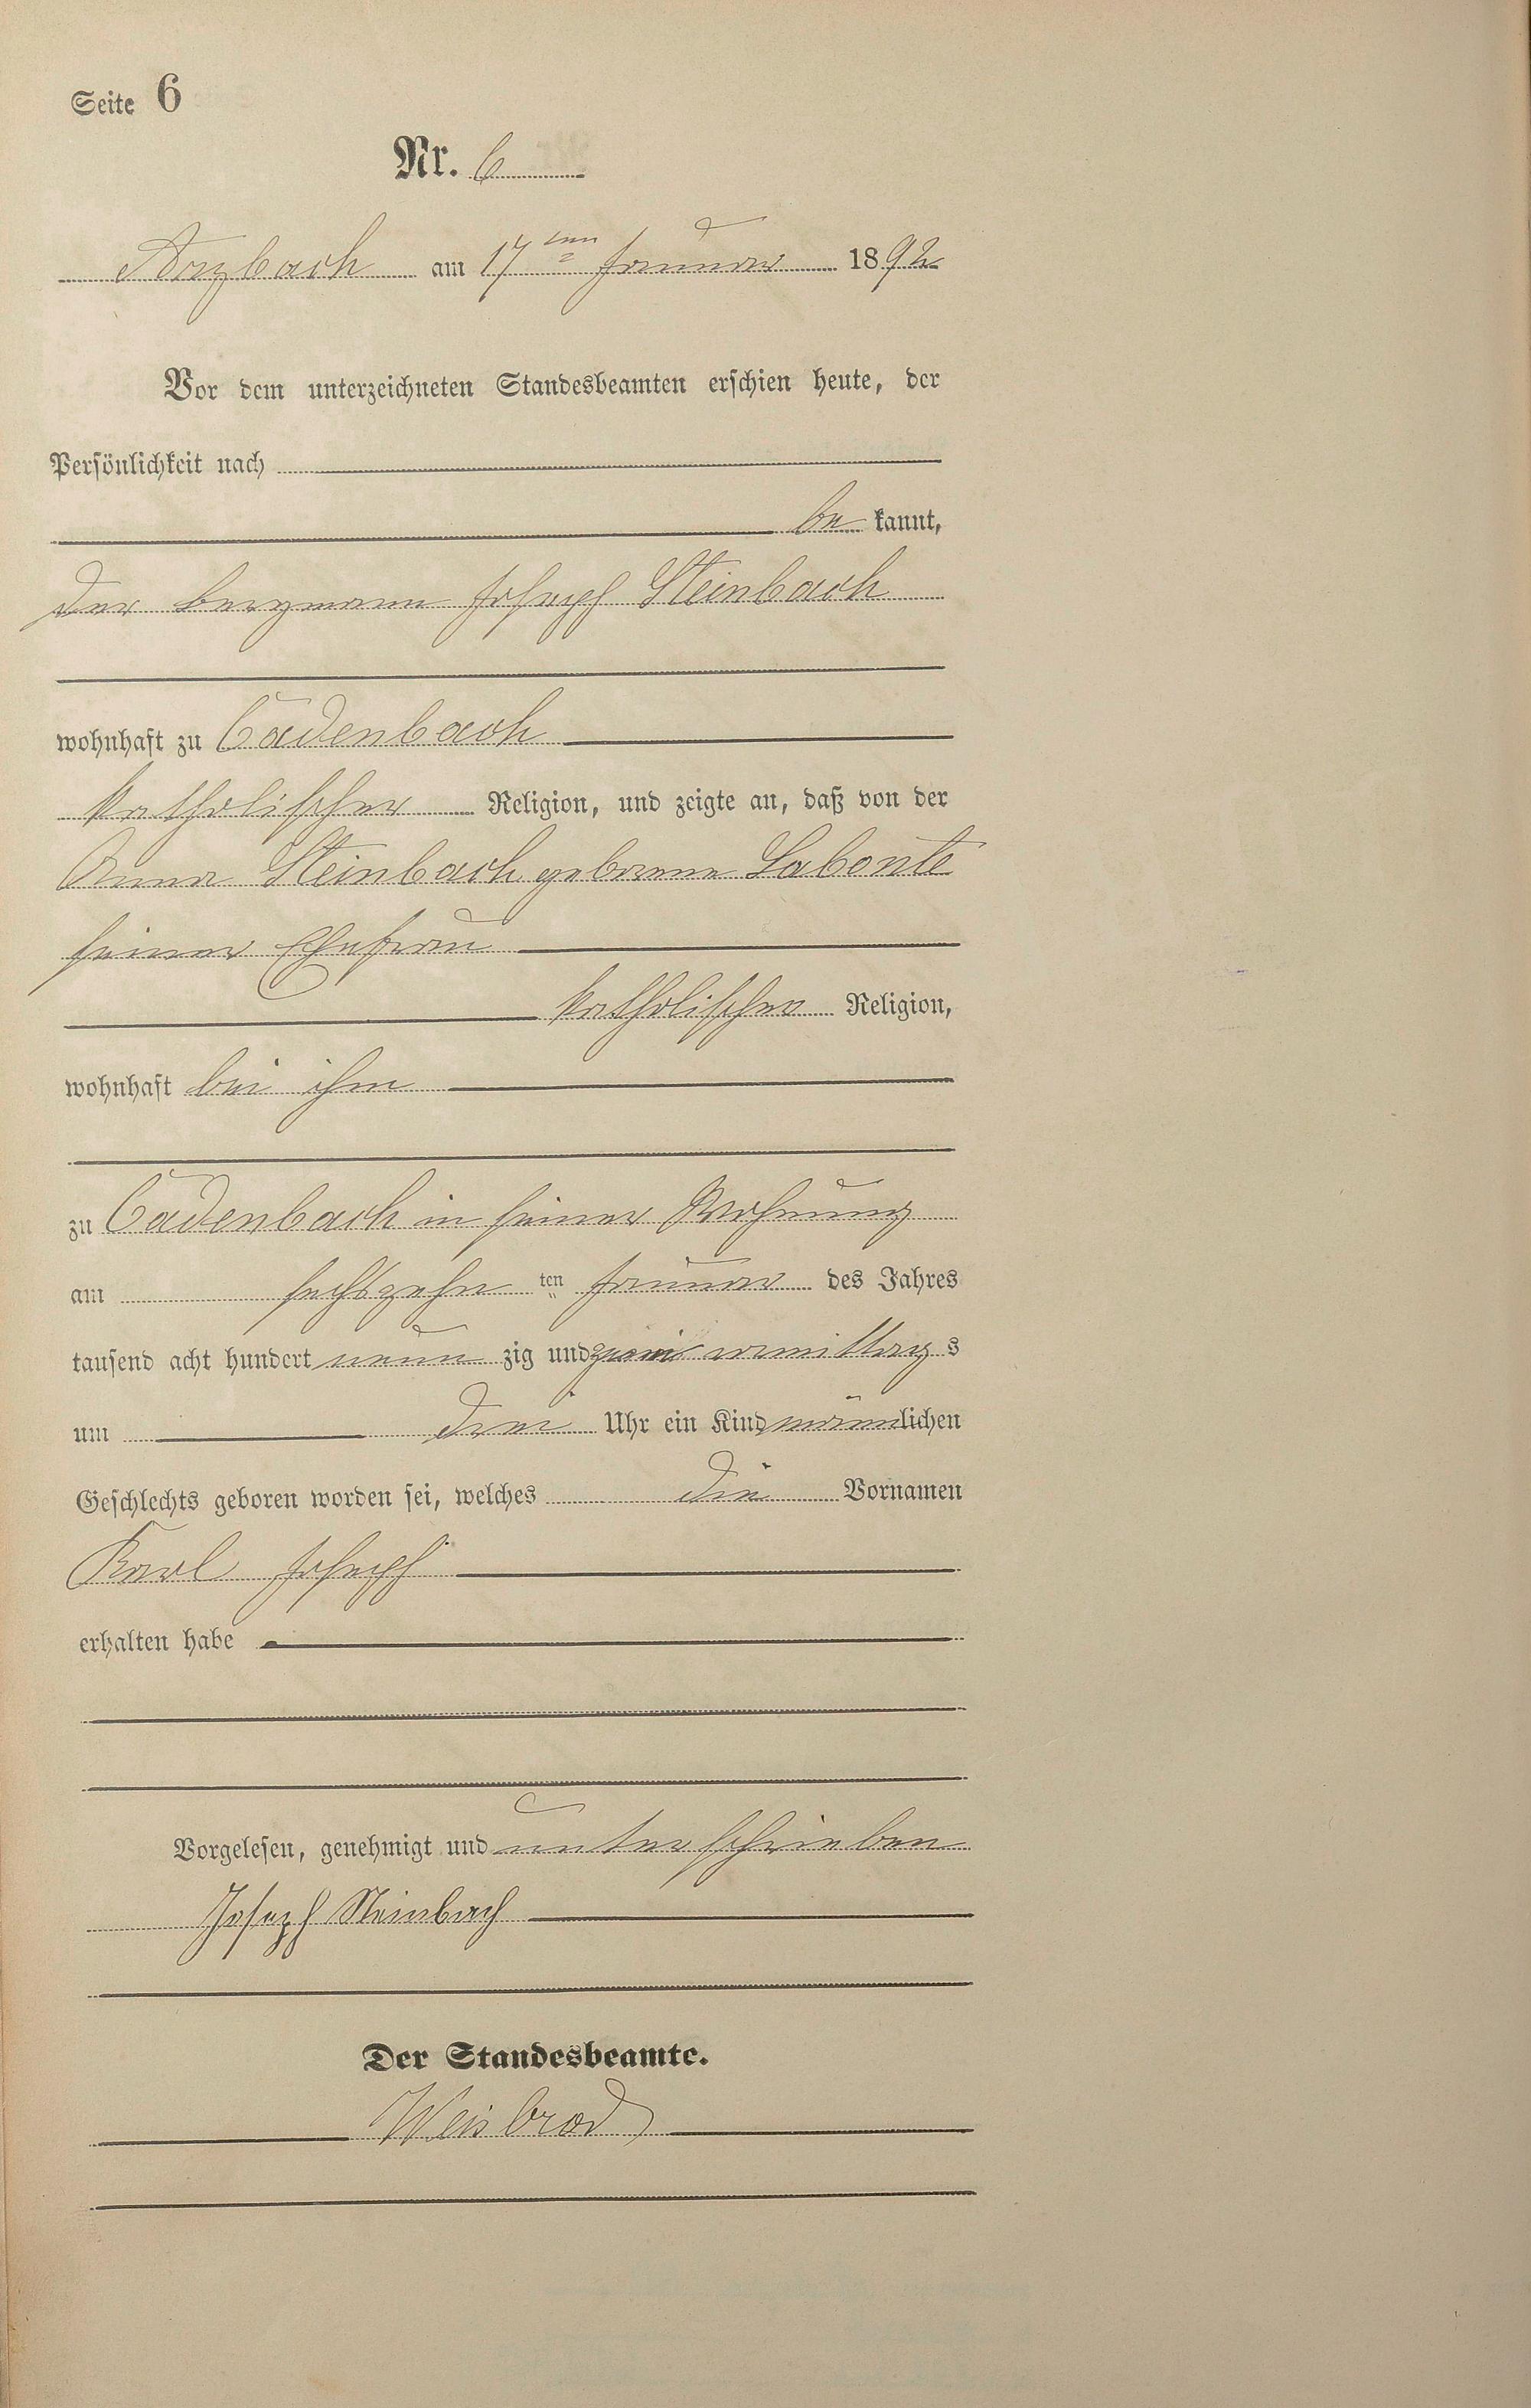 Seite 6
Nr. 6
Arzbach am 17ten Januar 1892
Vor dem unterzeichneten Standesbeamten erschien heute, der
Persönlichkeit nach
be kannt,
der Bergmann Joseph Steinbach
wohnhaft zu Cadenbach
katholischer Religion, und zeigte an, daß von der
Anna Steinbach geborene Labonte
seiner Ehefrau
katholischer Religion,
wohnhaft bei ihm
zu Cadenbach in seiner Wohnung
am sechszehn ten Januar des Jahres
tausend acht hundert neun zig und zwei vormittag s
um drei Uhr ein Kind männlichen
Geschlechts geboren worden sei, welches die Vornamen
Karl Joseph
erhalten habe
Vorgelesen, genehmigt und unterschrieben
Joseph Steinbach
Der Standesbeamte.
Weisbrod